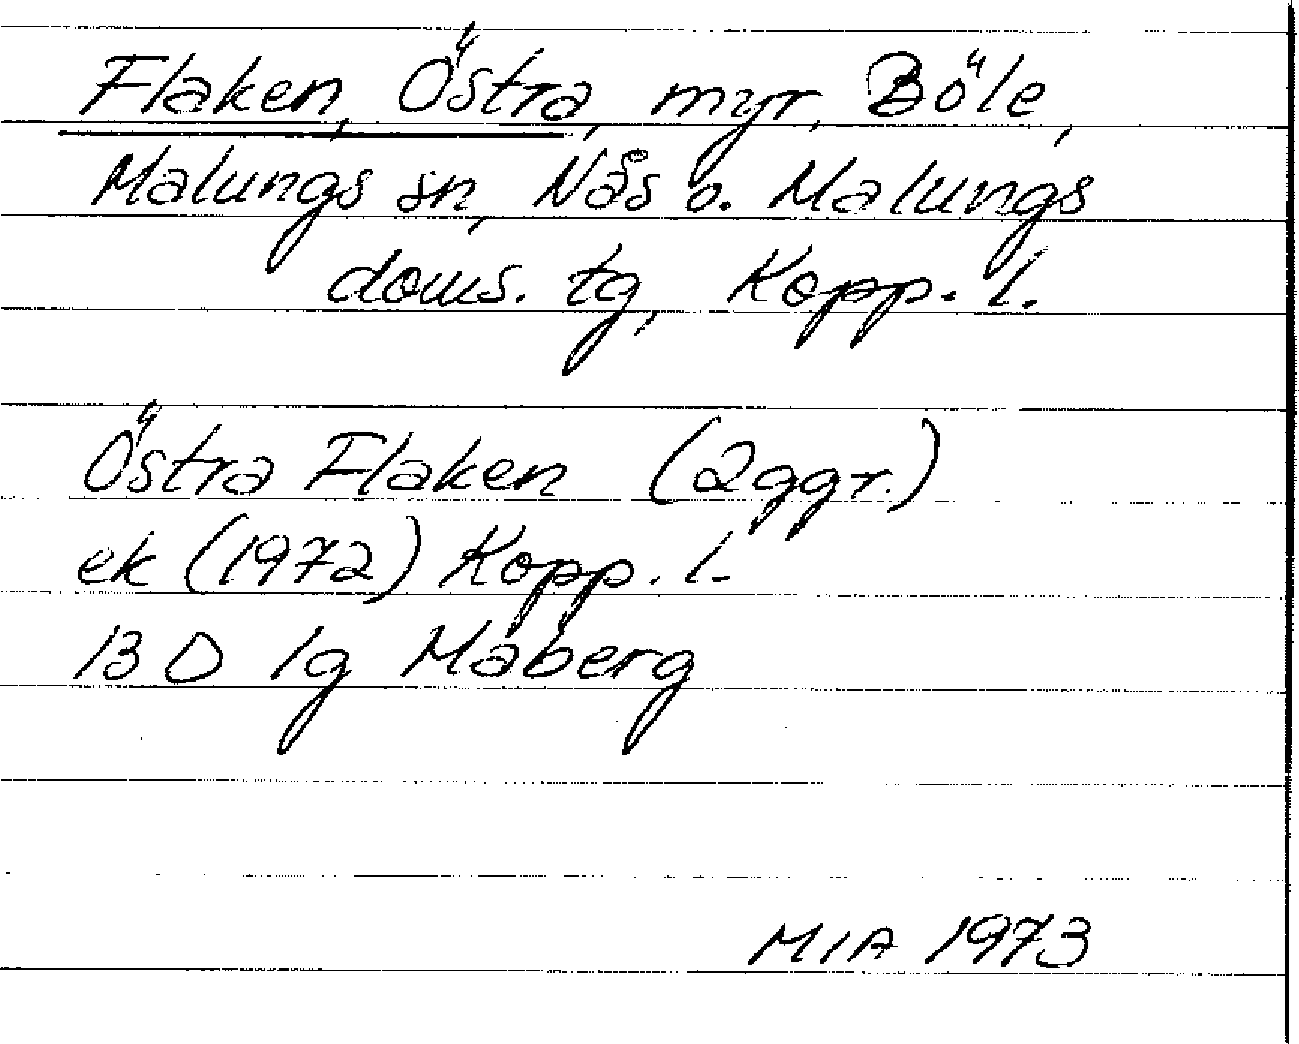 Flaken, Östra, myr, Böle,
Malungs sn, Nås o. Malungs
doms. tg, Kopp. l.
Östra Flaken (2ggr.)
ek (1972) Kopp. l.
13 D 1g Måberg
MIA 1973